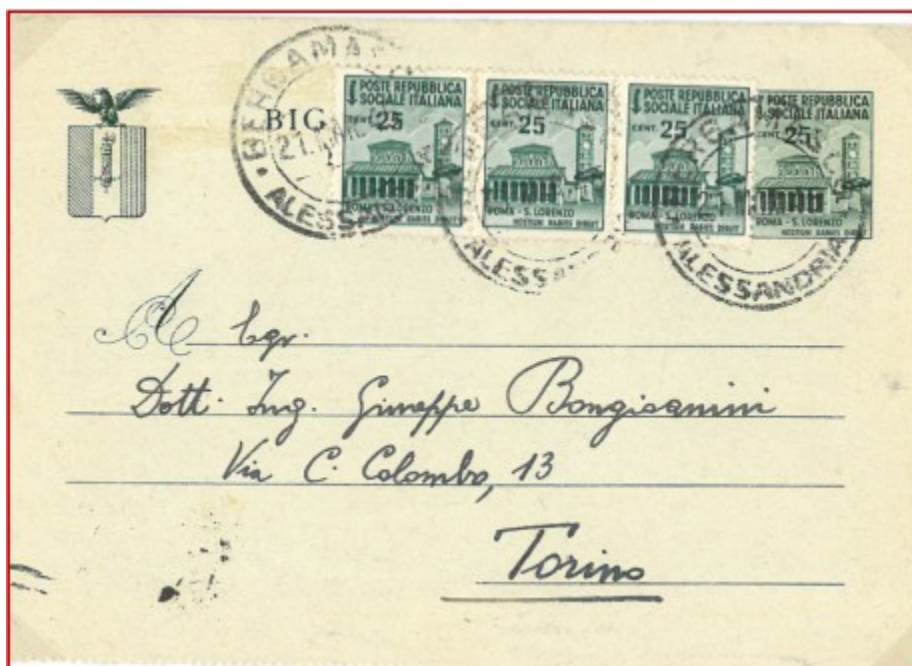 BERGAMA
21. MAR
ALESSA
BIG
POSTE REPUBBLICA
SOCIALE ITALIANA
CENT. 25
ROMA - S. LORENZO
HOSTIUM RABIES DIRUIT
POSTE REPUBBLICA
SOCIALE ITALIANA
CENT. 25
ROMA - S. LORENZO
HOSTIUM RABIES DIRUIT
ALESSA
POSTE REPUBBLICA
SOCIALE ITALIANA
CENT. 25
ROMA - S. LORENZO
HOSTIUM RABIES DIRUIT
POSTE REPUBBLICA
SOCIALE ITALIANA
CENT. 25
ROMA - S. LORENZO
HOSTIUM RABIES DIRUIT
ALESSANDRIA
A Egr.
Dott. Ing. Giuseppe Bongioannini
Via C. Colombo, 13
Torino